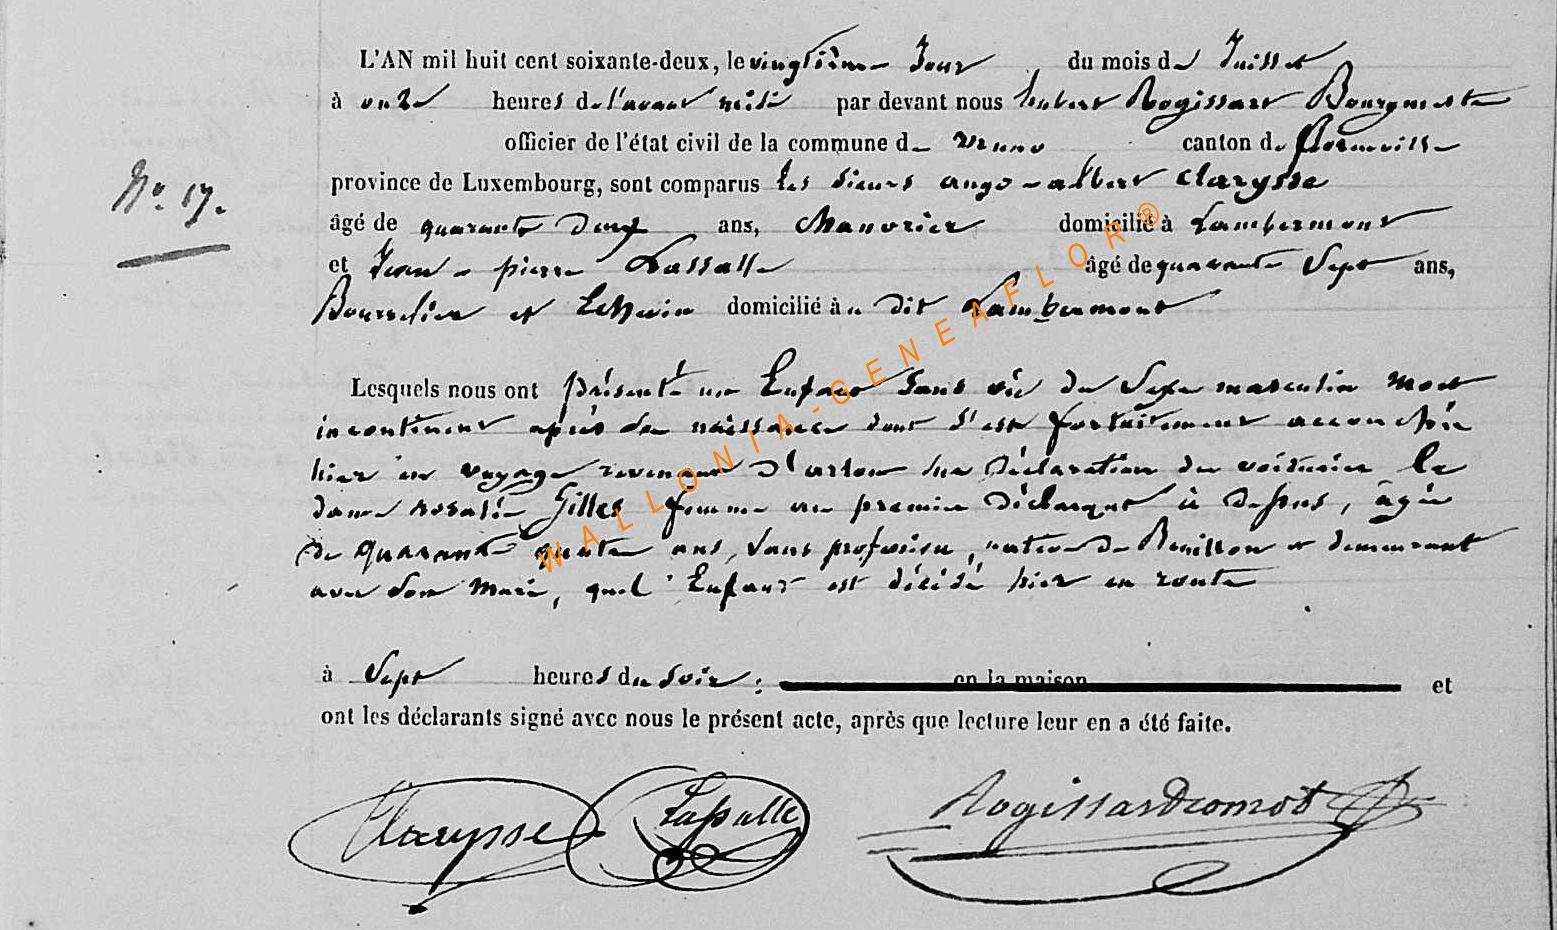 L'AN mil huit cent soixante-deux, le vingtième Jour du mois de Juillet
à onze heures de l'avant midi par devant nous hubert Rogissart Bourgmestre
officier de l'état civil de la commune de muno canton de florenville
N° 17.
province de Luxembourg, sont comparus les sieurs ange-albert Clarysse
âgé de quarante deux ans, Manoeuvrier domicilié à Lambermont
et Jean-pierre Lassalle âgé de quarante Sept ans,
Bourrelier et Echevin domicilié à dit Lambermont
Lesquels nous ont présenté un Enfant sans vie du Sexe masculin mort
incontinent après sa naissance dont s'est fortuitement accouchée
hier en voyage revenant d'arlon sur déclaration du voiturier la
dame rosalie Gilles femme au premier déclarant ci dessus, âgée
de quarante quatre ans, sans profession, native de Bouillon et demeurant
avec son mari, quel Enfant est décédé hier en route
à Sept heures du soir ; en la maison et
ont les déclarants signé avec nous le présent acte, après que lecture leur en a été faite.
Clarysse Lassalle Rogissart
WALLONIA-GENEAFLOR®